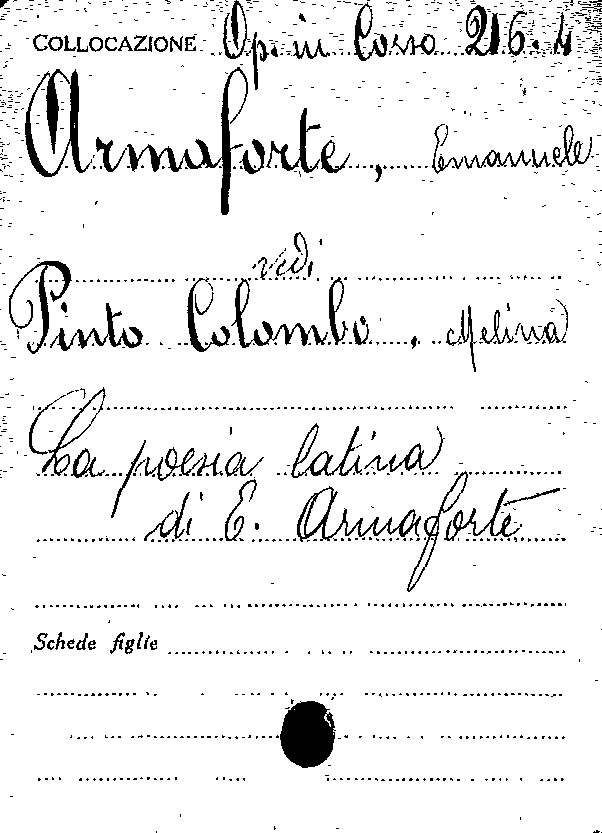 COLLOCAZIONE Op. in Corso 216.4
Armaforte, Emanuele
vedi
Pinto Colombo, Melina
La poesia latina
di E. Armaforte
Schede figlie